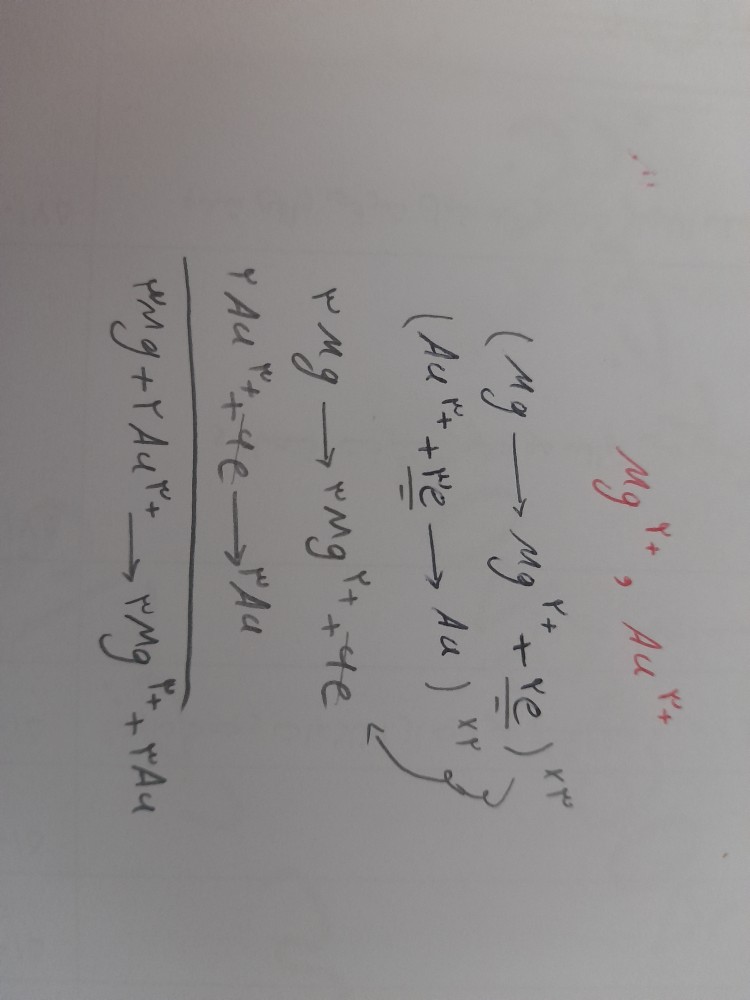 Mg²⁺ , Au³⁺
(Mg → Mg^۲+ + ۲e) ×۳
(Au^۳+ + ۳e → Au) ×۲
۳Mg → ۳Mg^۲+ + ۶e
۲Au^۳+ + ۶e → ۲Au
۳Mg + ۲Au^۳+ → ۳Mg^۲+ + ۲Au